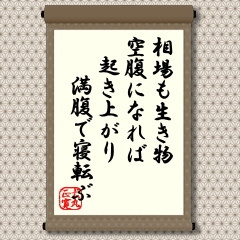 相場も生き物
空腹になれば
起き上がり
満腹で寝転ぶ